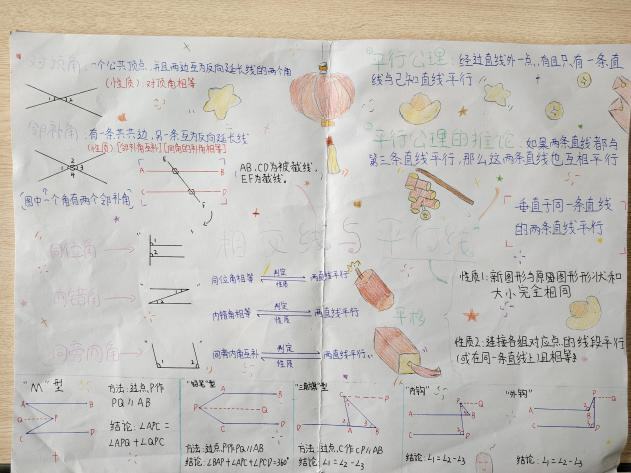 对顶角:一个公共顶点,并且两边互为反向延长线的两个角
(性质):对顶角相等
1
2
邻补角:有一条共公边,另一条互为反向延长线
(性质)[邻补角互补][同角的补角相等]
1
2
3
4
[图中一个角有两个邻补角]
E
A
B
C
D
F
AB,CD为被截线,
EF为截线。
平行公理:经过直线外一点,有且只有一条直
线与已知直线平行
平行公理的推论:如果两条直线都与
第三条直线平行,那么这两条直线也互相平行
垂直于同一条直线
的两条直线平行
相交线与平行线
同位角
1
2
内错角
同旁内角
同位角相等
判定
性质
两直线平行
内错角相等
判定
性质
两直线平行
同旁内角互补
判定
性质
两直线平行
平移
性质1:新图形与原图形形状和
大小完全相同
性质2:连接各组对应点的线段平行
(或在同一条直线上)且相等
"M"型
A
B
Q
P
C
D
方法:过点P作
PQ∥AB
结论:∠APC=
∠APQ+∠QPC
"铅笔"型
A
B
P
Q
C
D
方法:过点P作PQ∥AB
结论:∠BAP+∠APC+∠PCD=360°
C
P
A
D
B
方法:过点C作CP∥AB
结论:∠1=∠2-∠3
"内钩"
结论:∠1=∠2-∠3
"外钩"
结论:∠1=∠2-∠3